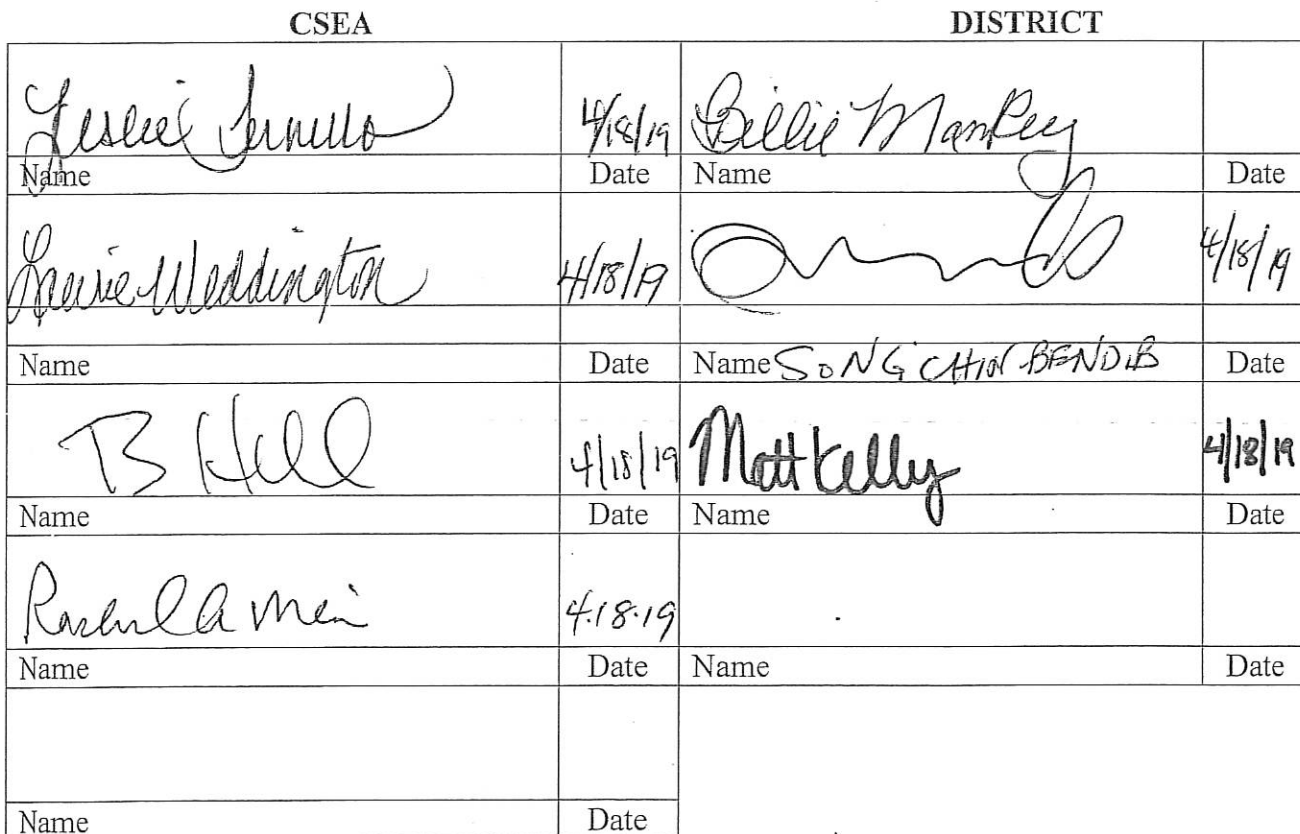 CSEA DISTRICT
Leslie 4/18/19 Billie Mankey
Name Date Name Date
Laurie Weddington 4/18/19 4/18/19
Name Date Name SONG CHIN BENDIB Date
B Hill 4/18/19 Matt Kelly 4/18/19
Name Date Name Date
4.18.19
Name Date Name Date
Name Date